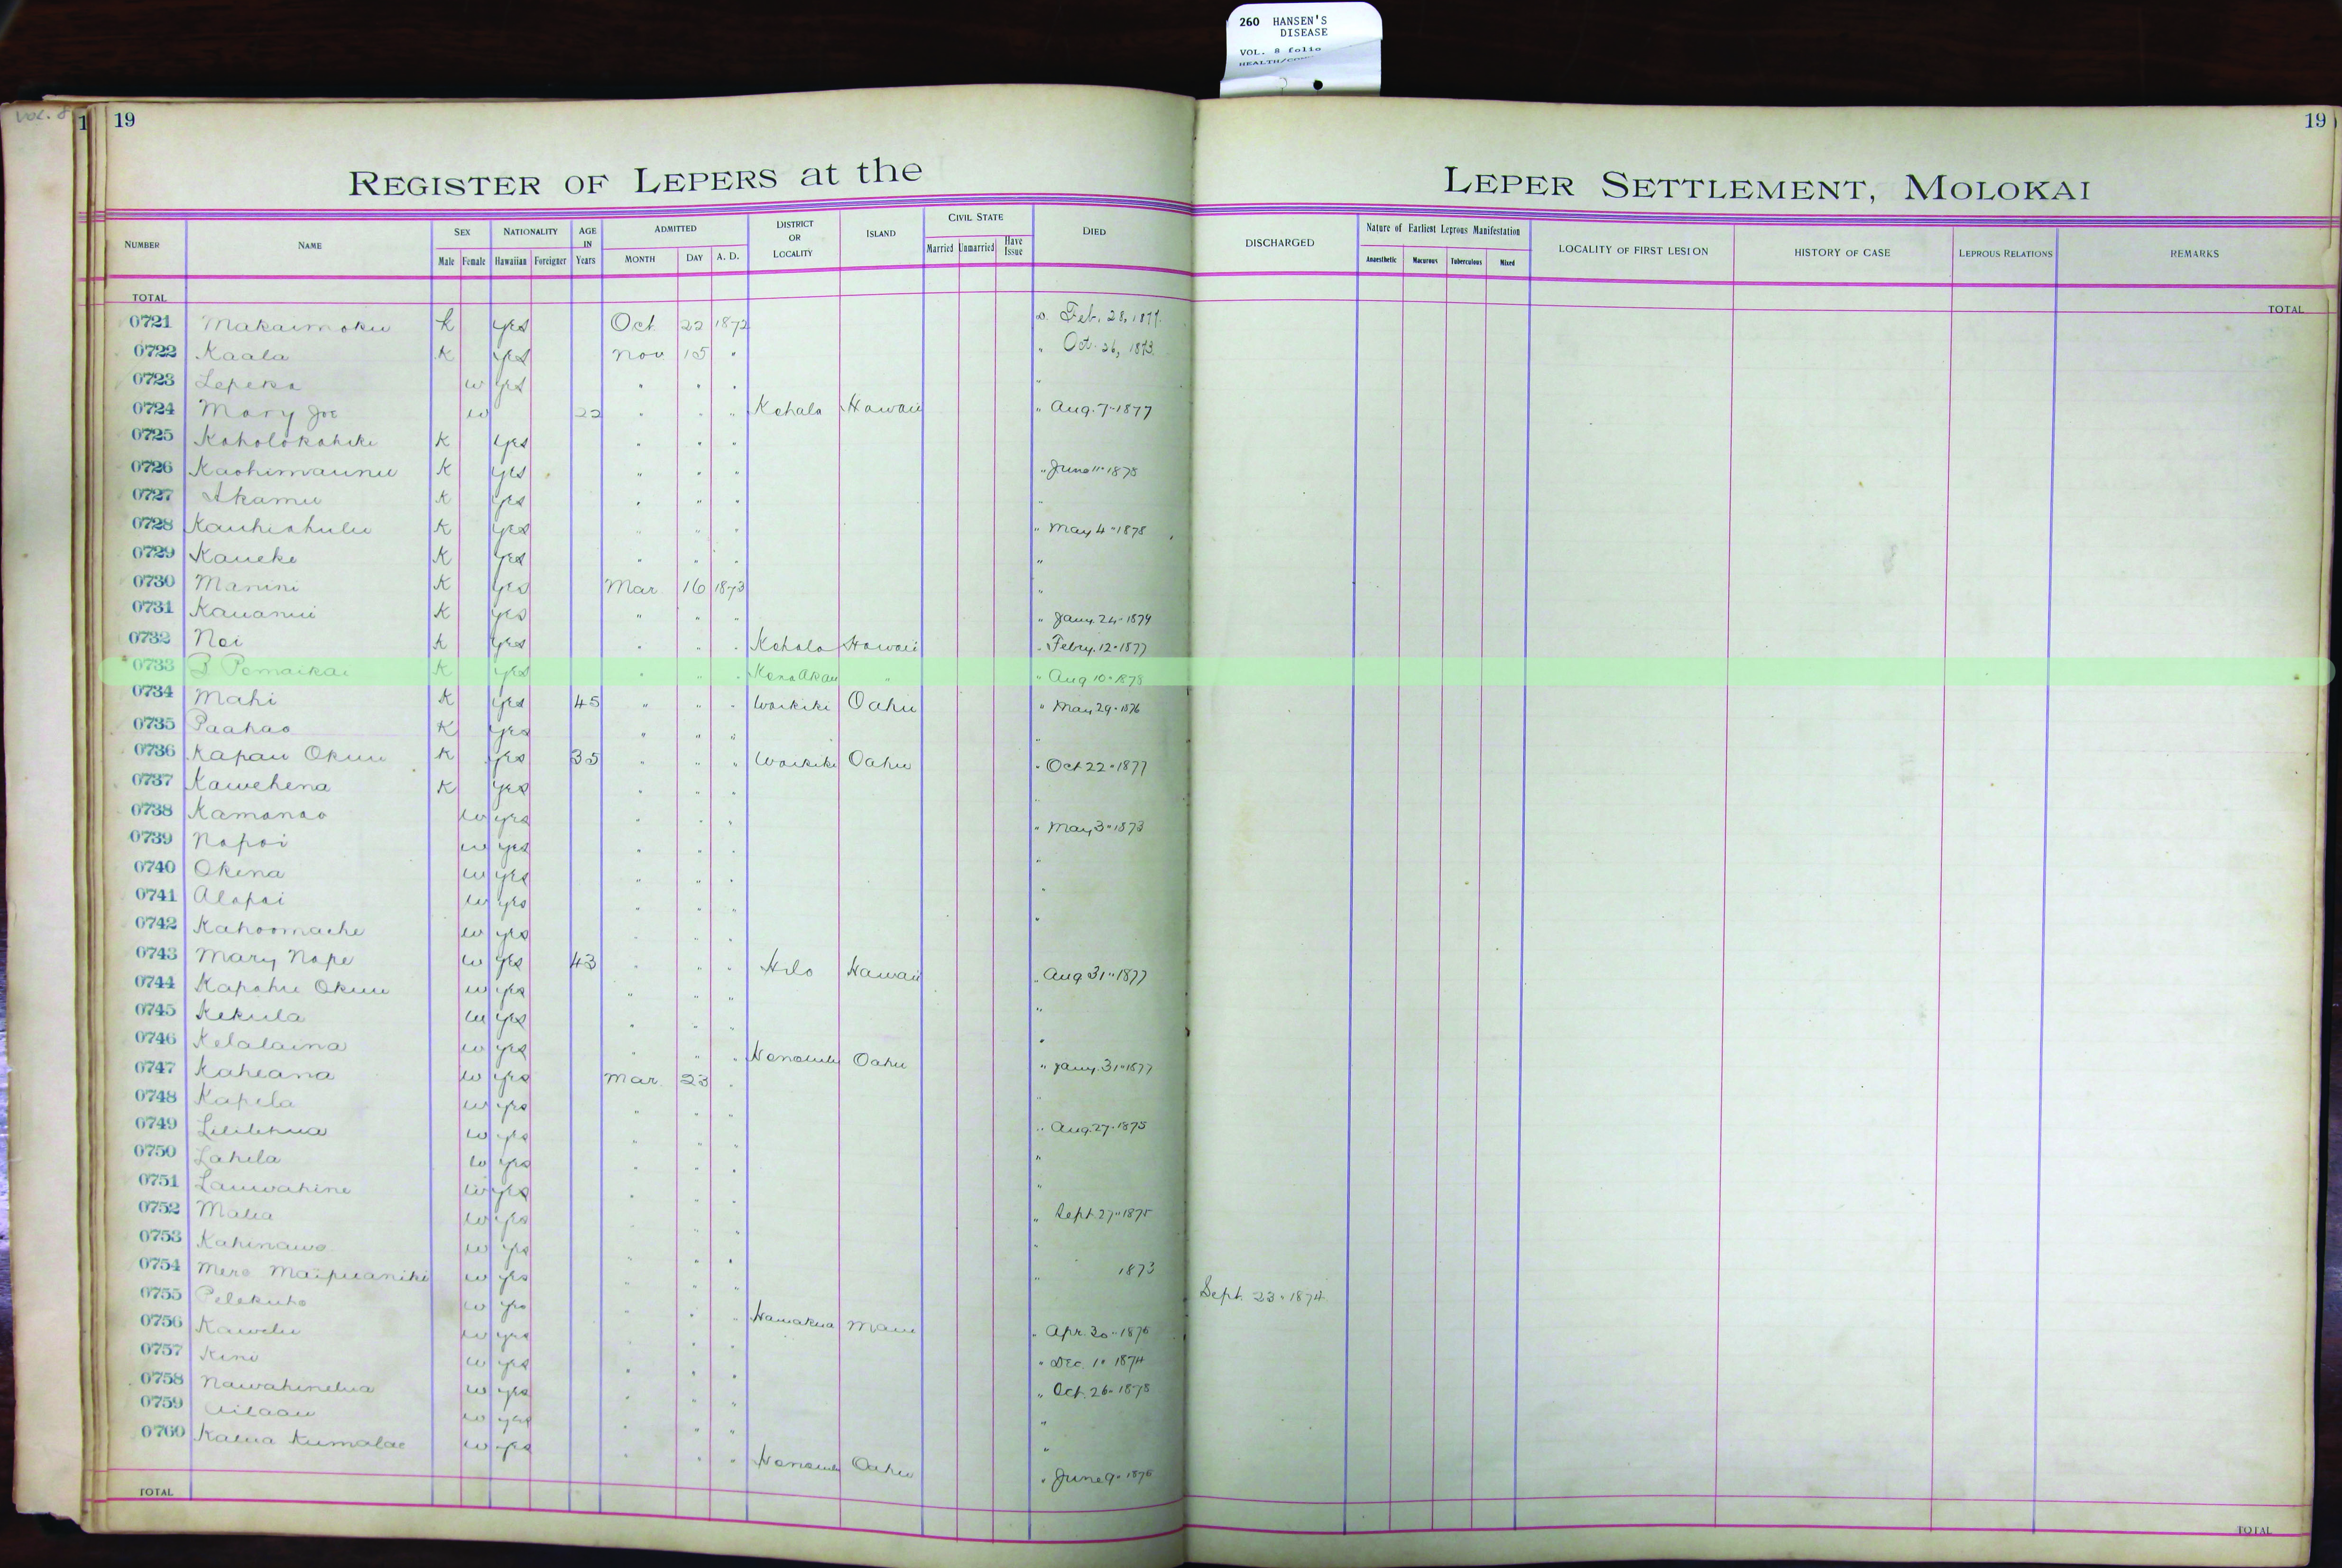 260 HANSEN'S
DISEASE
VOL. 8 folio
VOL. 8
1 19 19
REGISTER OF LEPERS at the LEPER SETTLEMENT, MOLOKAI
NUMBER NAME SEX Male Female NATIONALITY Hawaiian Foreigner AGE IN Years ADMITTED MONTH DAY A. D. DISTRICT OR LOCALITY ISLAND CIVIL STATE Married Unmarried Have Issue DIED DISCHARGED Nature of Earliest Leprous Manifestation Anaesthetic Macurous Tuberculous Mixed LOCALITY OF FIRST LESION HISTORY OF CASE LEPROUS RELATIONS REMARKS
TOTAL TOTAL
0721 Makaimoku k yes Oct 22 1872 D. Feb. 28, 1877.
0722 Kaala K yes Nov 15 " " Oct. 26, 1873.
0723 Lepeka w yes " " " "
0724 Mary Joe w 22 " " " Kohala Hawaii " Aug. 7-1877
0725 Koholokahiki K yes " " "
0726 Kaohimaunu K yes " " " " June 11-1878
0727 Akamu K yes " " " "
0728 Kauhiahulu K yes " " " " May 4-1878
0729 Kaueke K yes " " " "
0730 Manini K yes Mar 16 1873 "
0731 Kauanui K yes " " " " Jany. 24-1874
0732 Noi K yes " " " Kohala Hawaii " Febry. 12-1877
0733 B Pomaikai K yes " " " Kona Akau " " Aug 10-1878
0734 Mahi K yes 45 " " " Waikiki Oahu " May 29-1876
0735 Paahao K yes " " " "
0736 Kapau Okuu K yes 35 " " " Waikiki Oahu " Oct 22-1877
0737 Kawehena K yes " " " "
0738 Kamanao w yes " " " " May 3-1873
0739 Napoi w yes " " " "
0740 Okina w yes " " " "
0741 Alapai w yes " " " "
0742 Kahoomaehe w yes " " "
0743 Mary Nape w yes 43 " " " Hilo Hawaii " Aug 31-1877
0744 Kapahu Okuu w yes " " " "
0745 Kekula w yes " " " "
0746 Kelalaina w yes " " " Honolulu Oahu " Jany. 31-1877
0747 Kaheana w yes Mar. 23 " "
0748 Kapela w yes " " " " Aug. 27-1875
0749 Liilihua w yes " " " "
0750 Lahela w yes " " " "
0751 Lauwahine w yes " " " " Sept 27-1875
0752 Malia w yes " " " "
0753 Kahinawe w yes " " " " 1873
0754 Mere Maipuaniki w yes " " " Sept. 23-1874
0755 Pelekuho w yes " " " Hamakua Maui " Apr. 30-1876
0756 Kawelu w yes " " " " Dec. 10 1874
0757 Kini w yes " " " " Oct. 26-1878
0758 Nawahinelua w yes " " " "
0759 Ailaau w yes " " " "
0760 Kalua Kumalae w yes " " " Honolulu Oahu " June 9-1876
TOTAL TOTAL